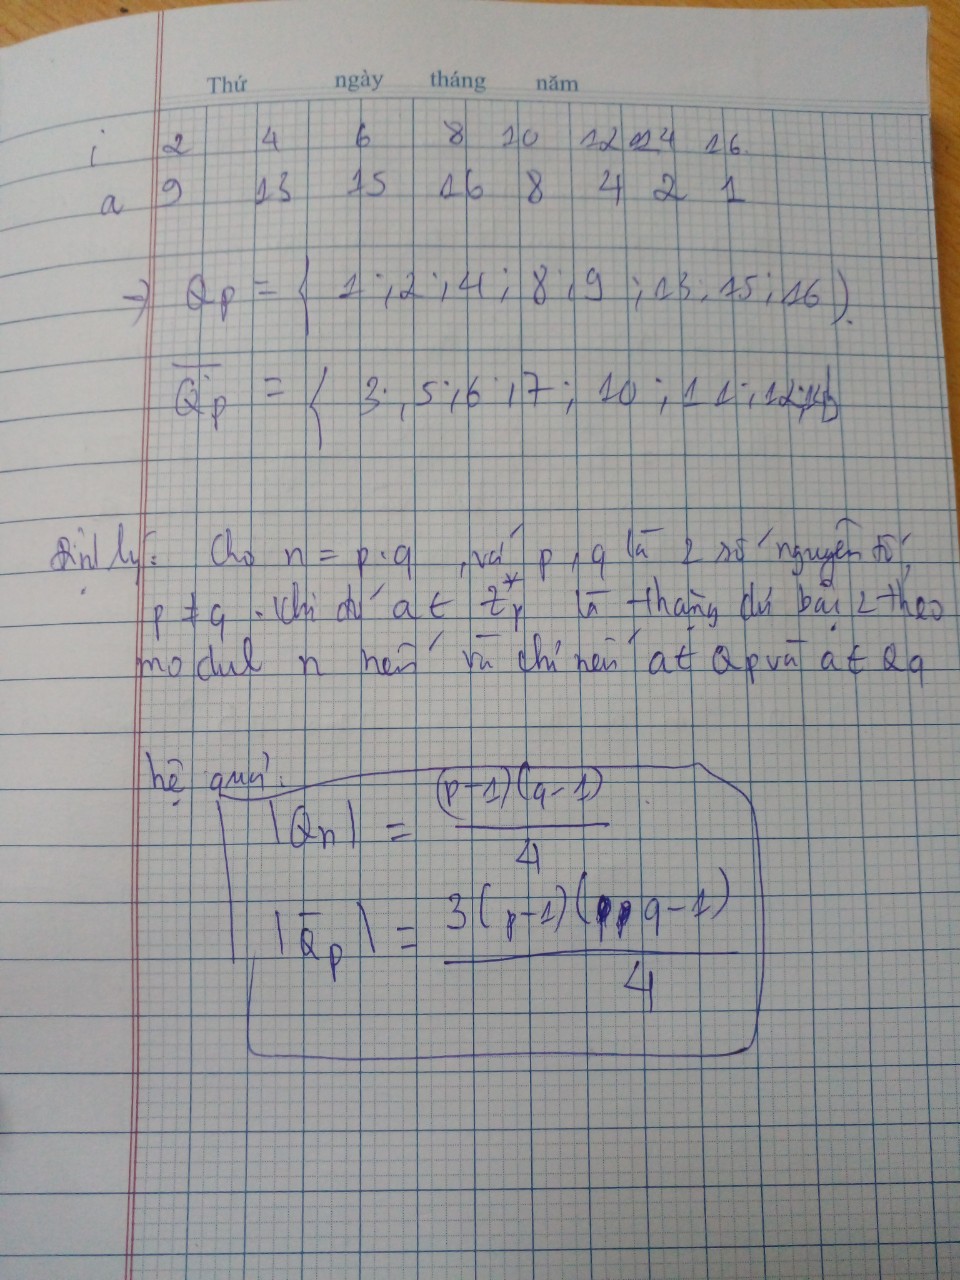 Thứ ngày tháng năm
i 2 4 6 8 10 12 14 16
a 9 13 15 16 8 4 2 1
→ Qp = { 1 ; 2 ; 4 ; 8 ; 9 ; 13 ; 15 ; 16 }
Q̅p = { 3 ; 5 ; 6 ; 7 ; 10 ; 11 ; 12 ; 14 }
Định lý: Cho n = p.q , với p , q là 2 số nguyên tố,
p ≠ q . Khi đó a ∈ Z*p là thặng dư bậc 2 theo
modul n nếu và chỉ nếu a ∈ Qp và a ∈ Qq
hệ quả:
|Qn| = (p-1)(q-1) / 4
|Q̅p| = 3(p-1)(q-1) / 4